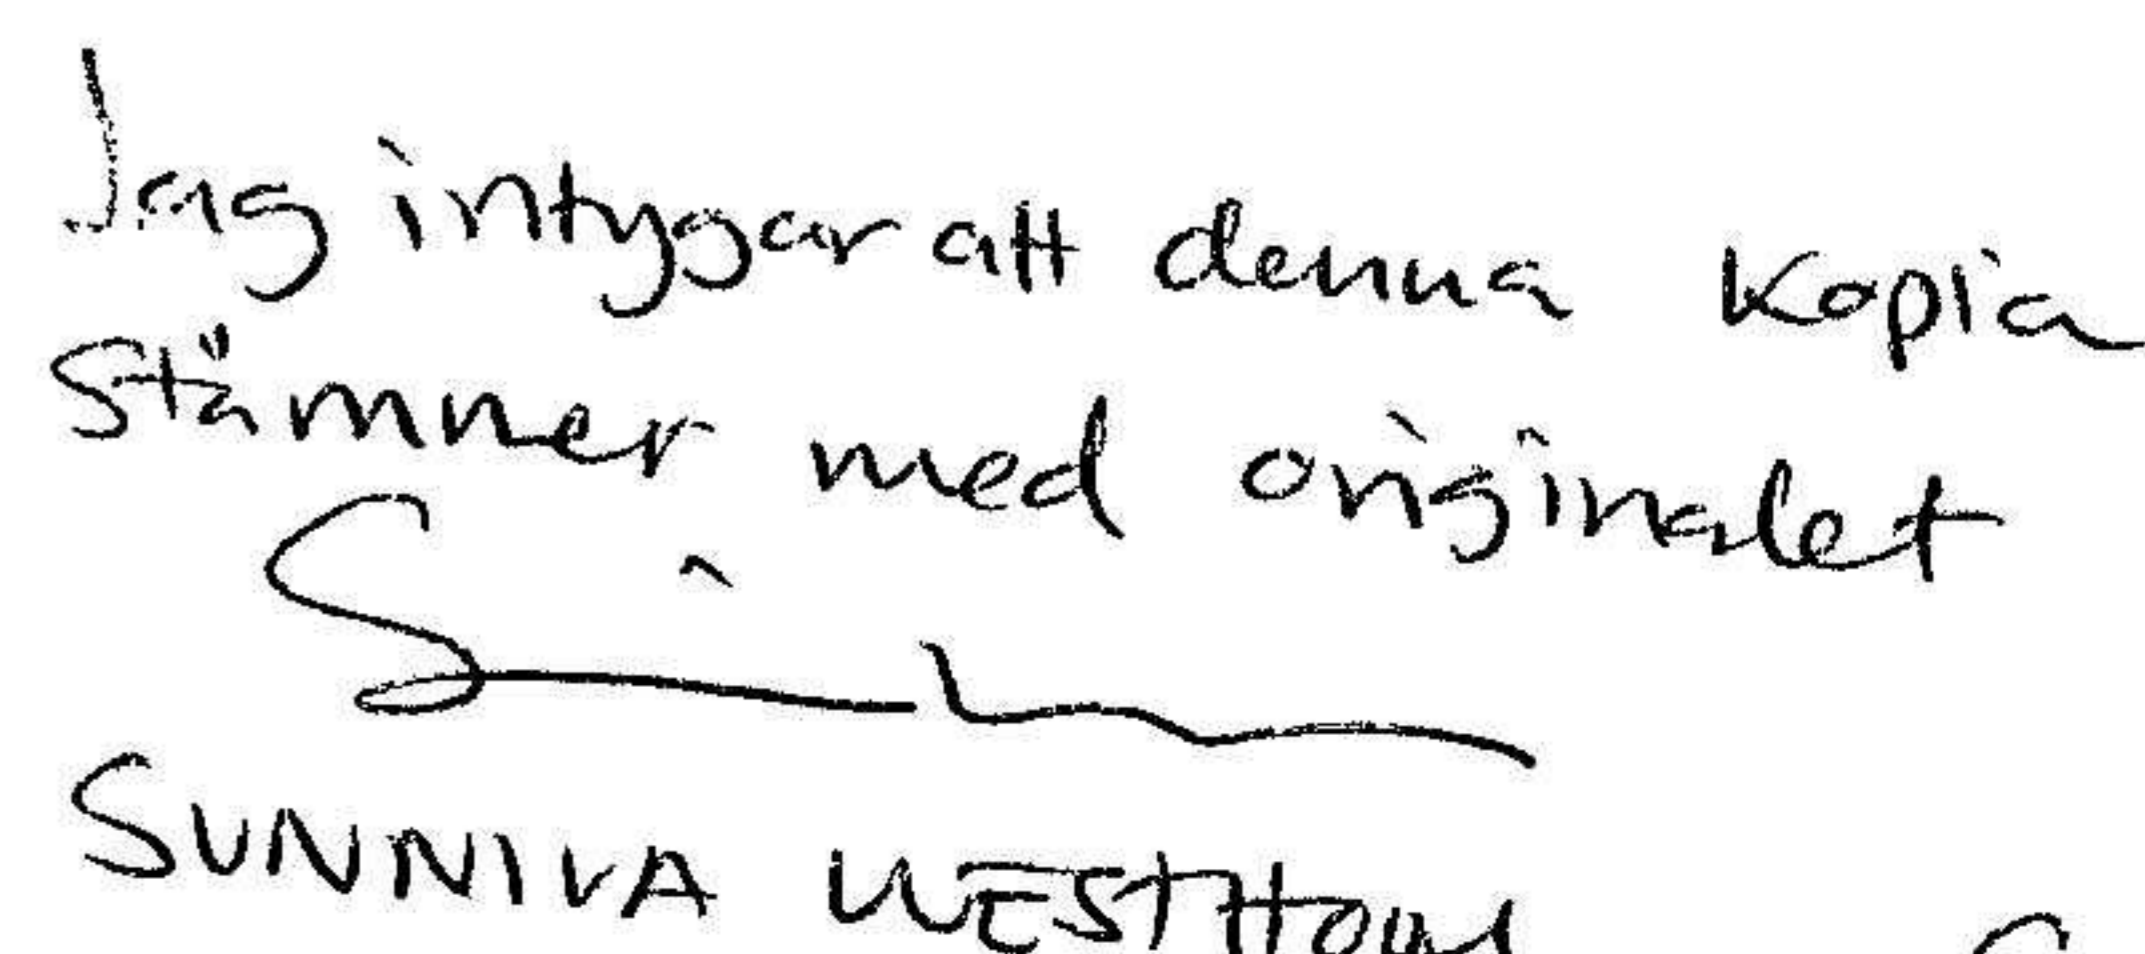 Jag intygar att denna kopia
stämmer med originalet
SUNNIVA